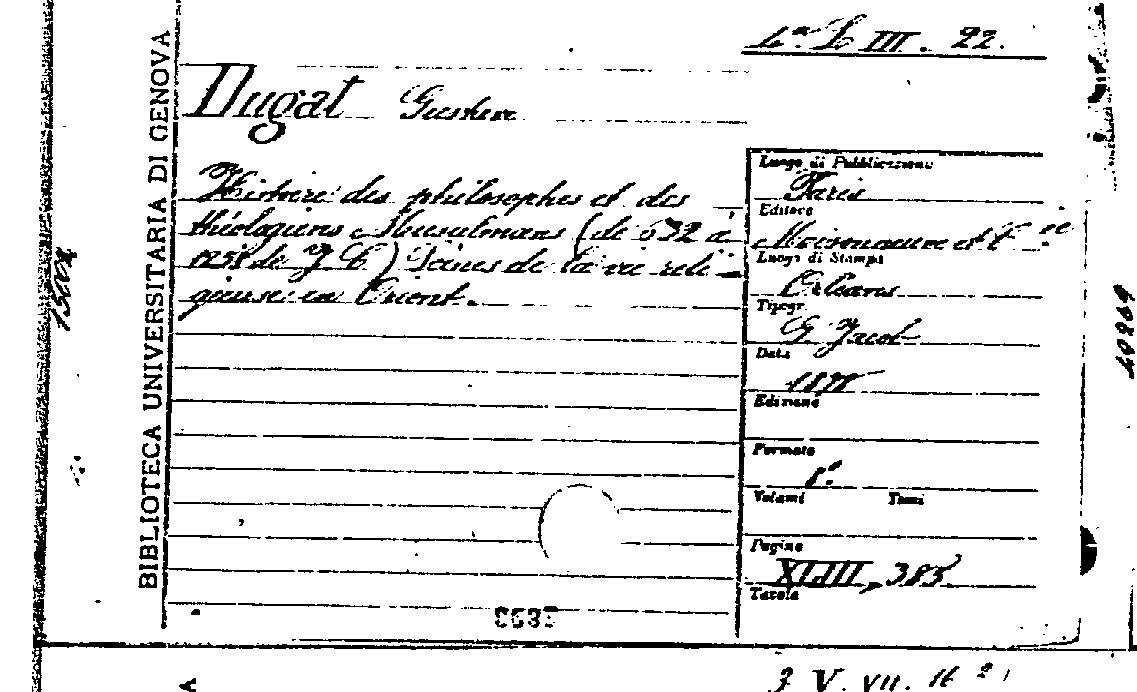 L.a L III. 22.
BIBLIOTECA UNIVERSITARIA DI GENOVA
Dugat Gustave
Histoire des philosophes et des
théologiens Musulmans (de 632 à
1258 de J. C.) Scènes de la vie reli-
gieuse en Orient.
Luogo di Pubblicazione
Paris
Editore
Maisonneuve et C.ie
Luogo di Stampa
Orléans
Tipogr.
G. Jacob
Data
1878
Edizione
Formato
8.º
Volumi Tomi
Pagine
XLIII, 385
Tavola